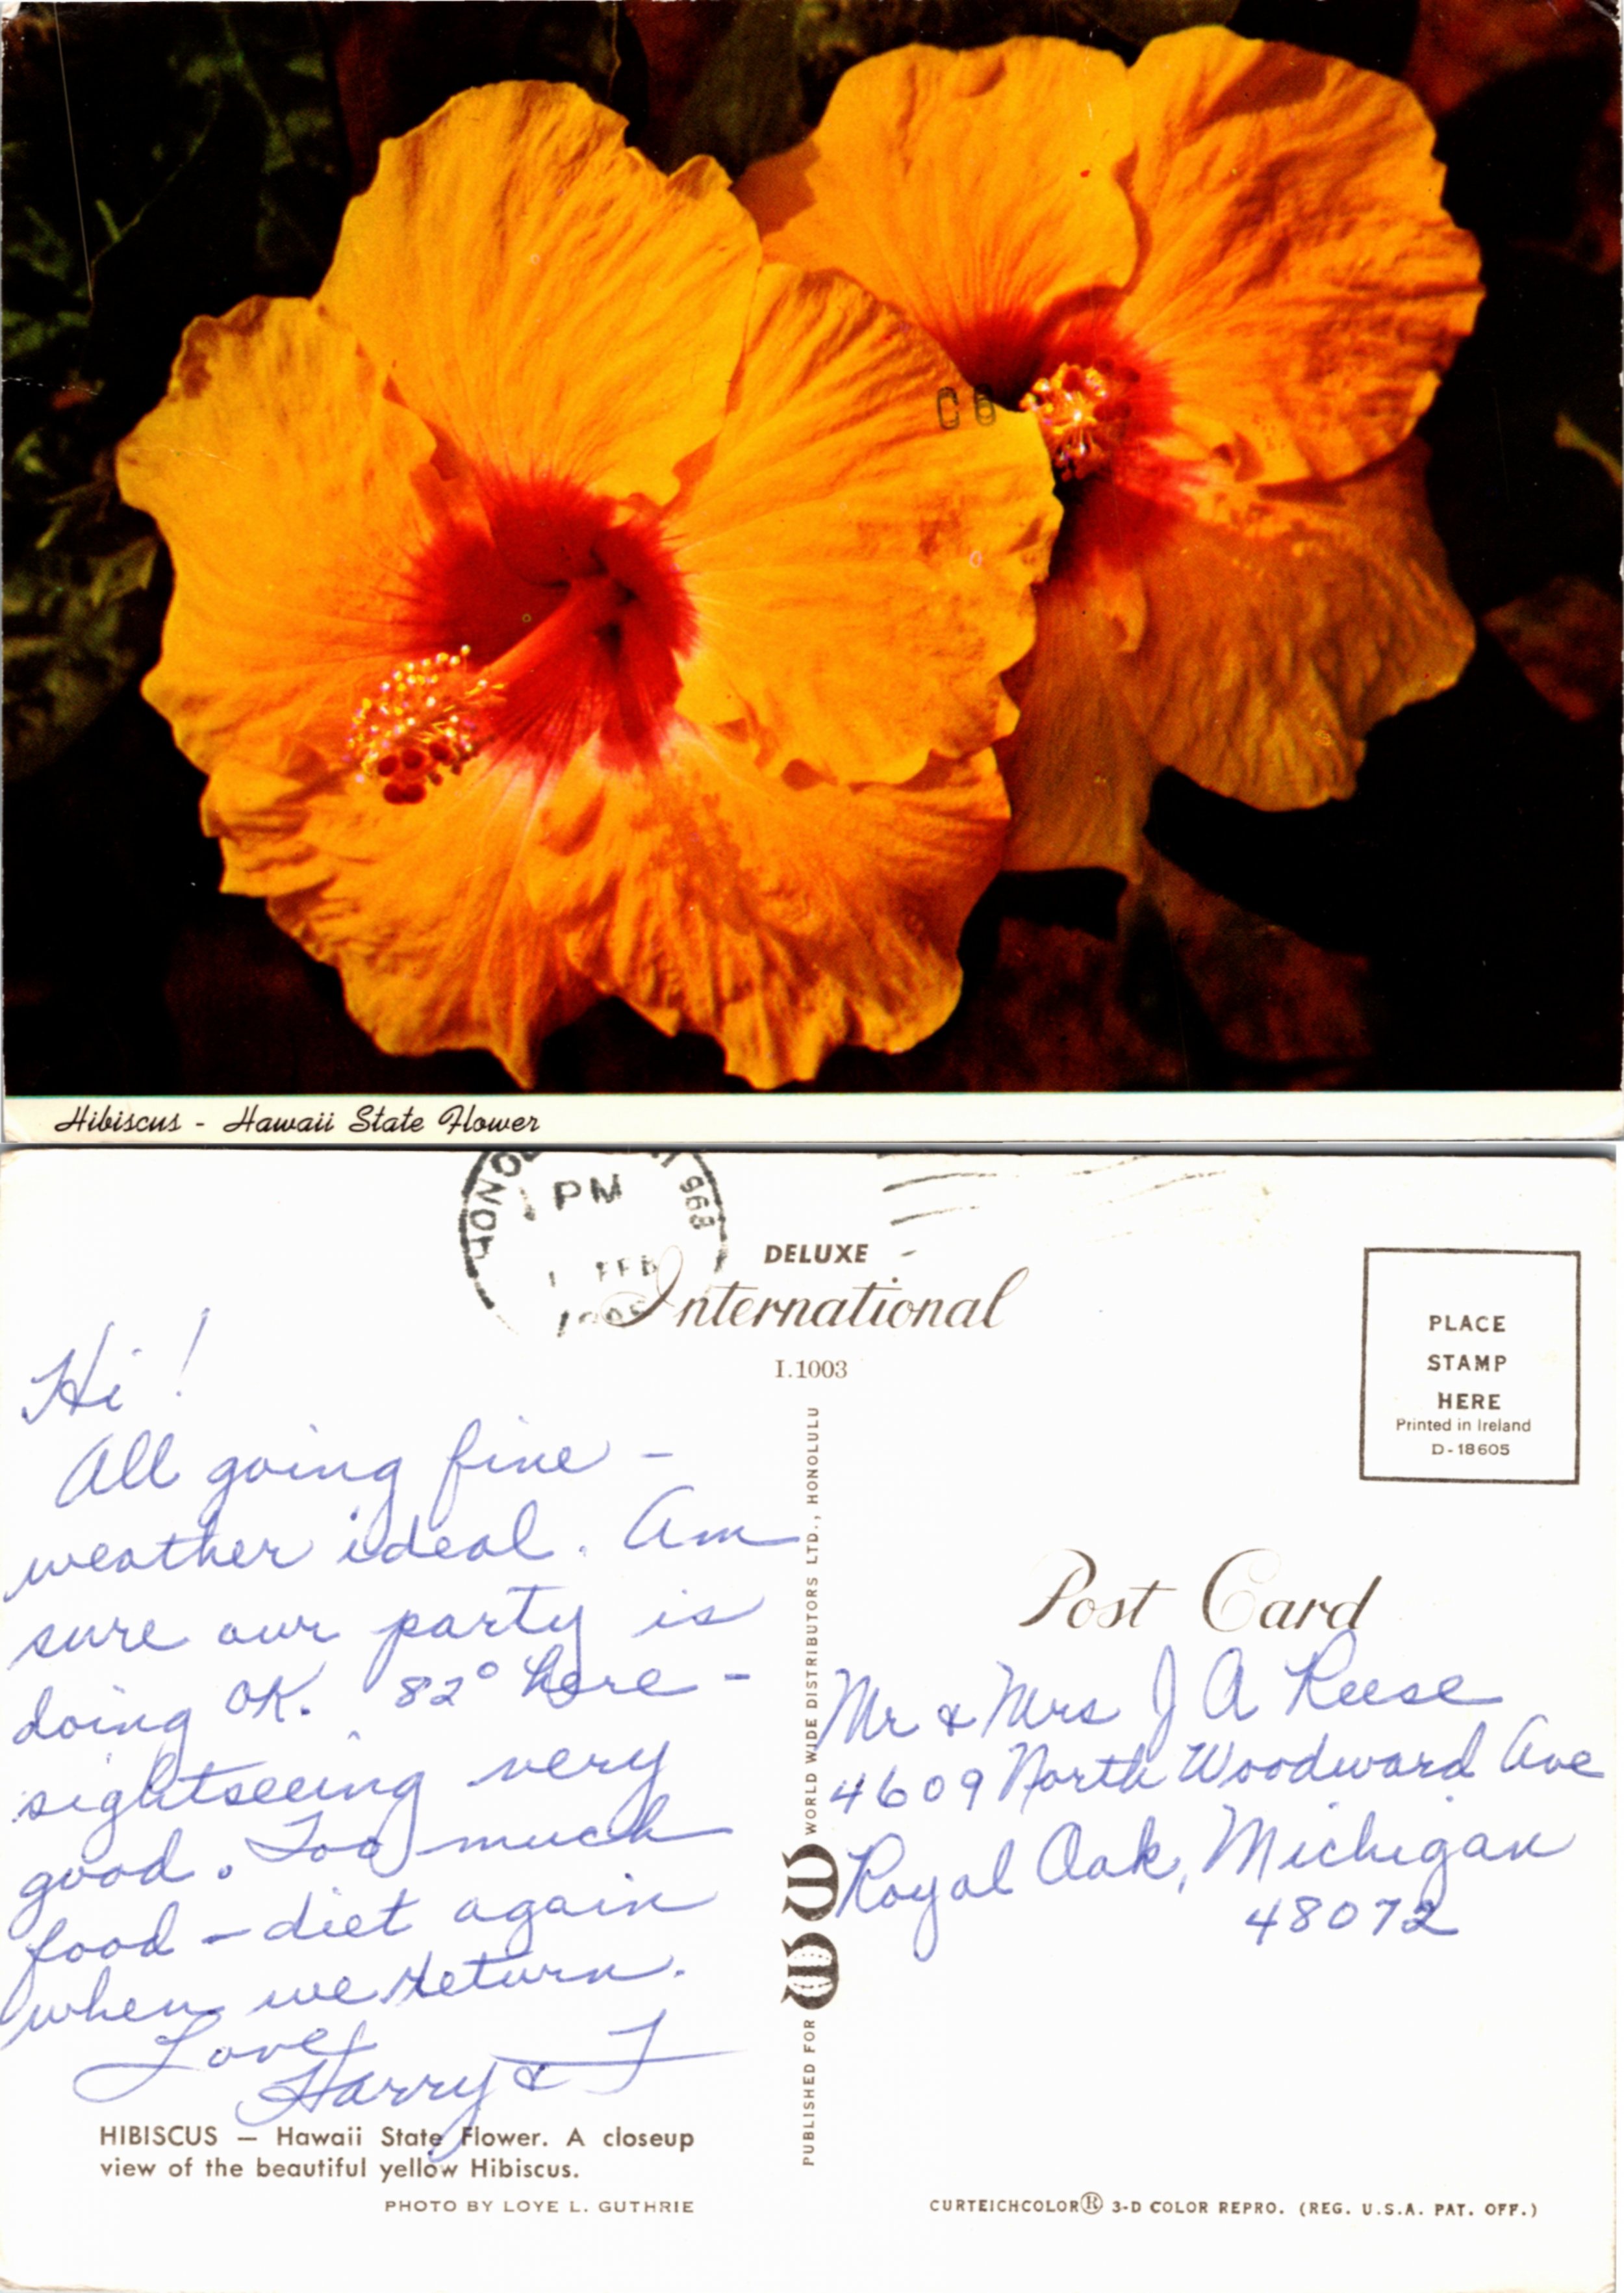 C B
Hibiscus - Hawaii State Flower
PM
968
FEB
DELUXE
International
I.1003
PLACE
STAMP
HERE
Printed in Ireland
D-18605
Hi!
All going fine -
weather ideal. Am
sure our party is
doing OK. 82° here -
sightseeing very
good. Too much
food - diet again
when we return.
Love,
Harry & J
PUBLISHED FOR WW WORLD WIDE DISTRIBUTORS LTD., HONOLULU
Post Card
Mr & Mrs J A Reese
4609 North Woodward Ave
Royal Oak, Michigan
48072
HIBISCUS — Hawaii State Flower. A closeup
view of the beautiful yellow Hibiscus.
PHOTO BY LOYE L. GUTHRIE
CURTEICHCOLOR® 3-D COLOR REPRO. (REG. U.S.A. PAT. OFF.)